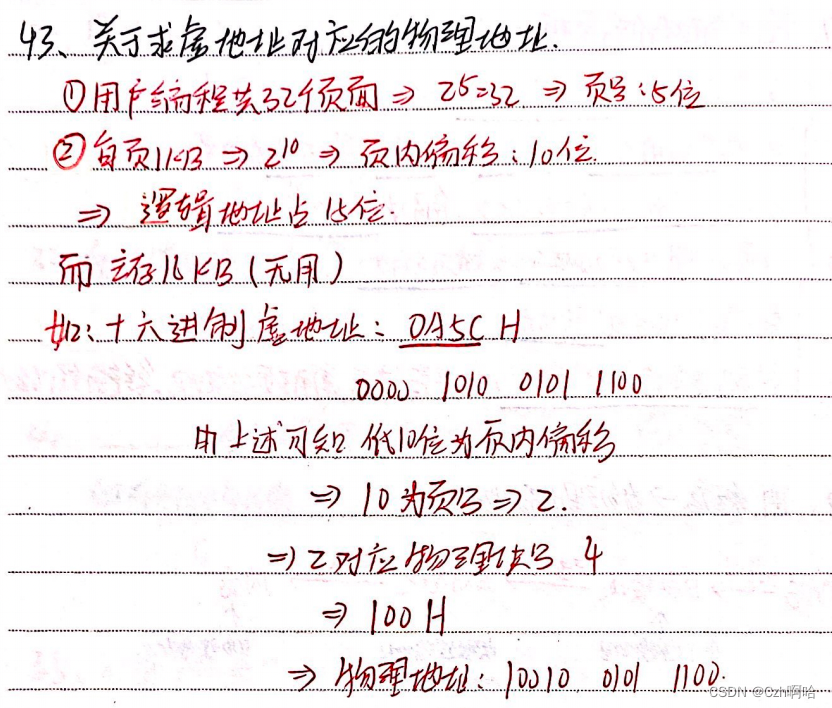 43、关于求虚地址对应的物理地址.
①用户编程共32个页面 ⇒ 2^5=32 ⇒ 页号:5位
②每页1KB ⇒ 2^10 ⇒ 页内偏移:10位.
⇒ 逻辑地址占15位.
而主存16KB(无用)
如:十六进制虚地址:0A5C H
0000 1010 0101 1100
由上述可知 低10位为页内偏移
⇒ 10为页号 ⇒ 2.
⇒ 2对应物理块号 4
⇒ 100 H
⇒ 物理地址:10010 0101 1100.
CSDN @Czh啊哈